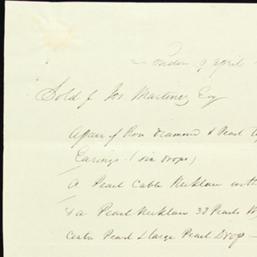 London 9 April
Sold f Jos Martinez Esq
A pair of Diamond & Pearl
Earings (six drops)
A Pearl Cable Necklace with
& a Pearl Necklace 33 Pearls
Center Pearl & large Pearl Drop —